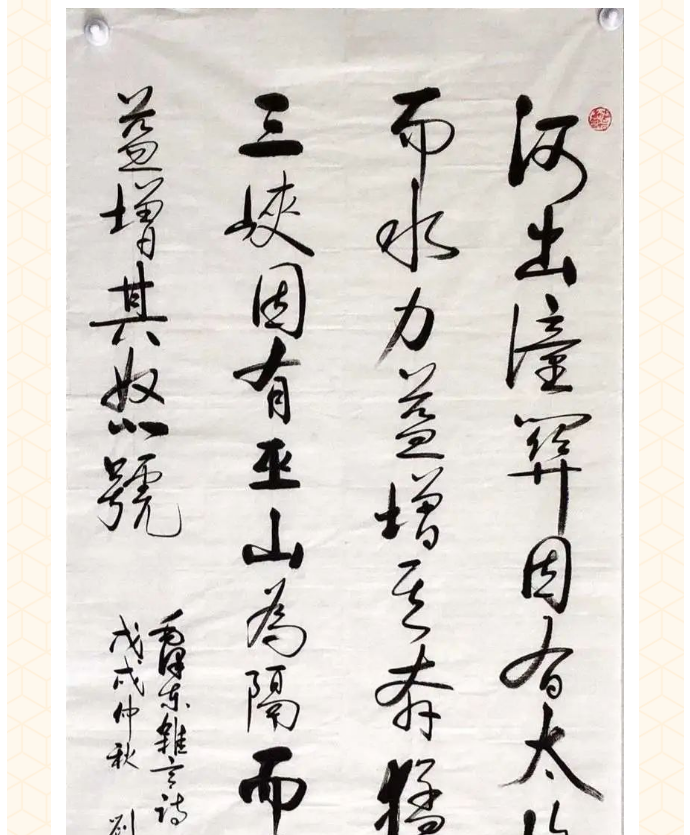 河出潼關因有太
而水力益增其奔猛
三峽因有巫山為隔而
益增其怒號
毛澤東雜言詩
戊戌仲秋